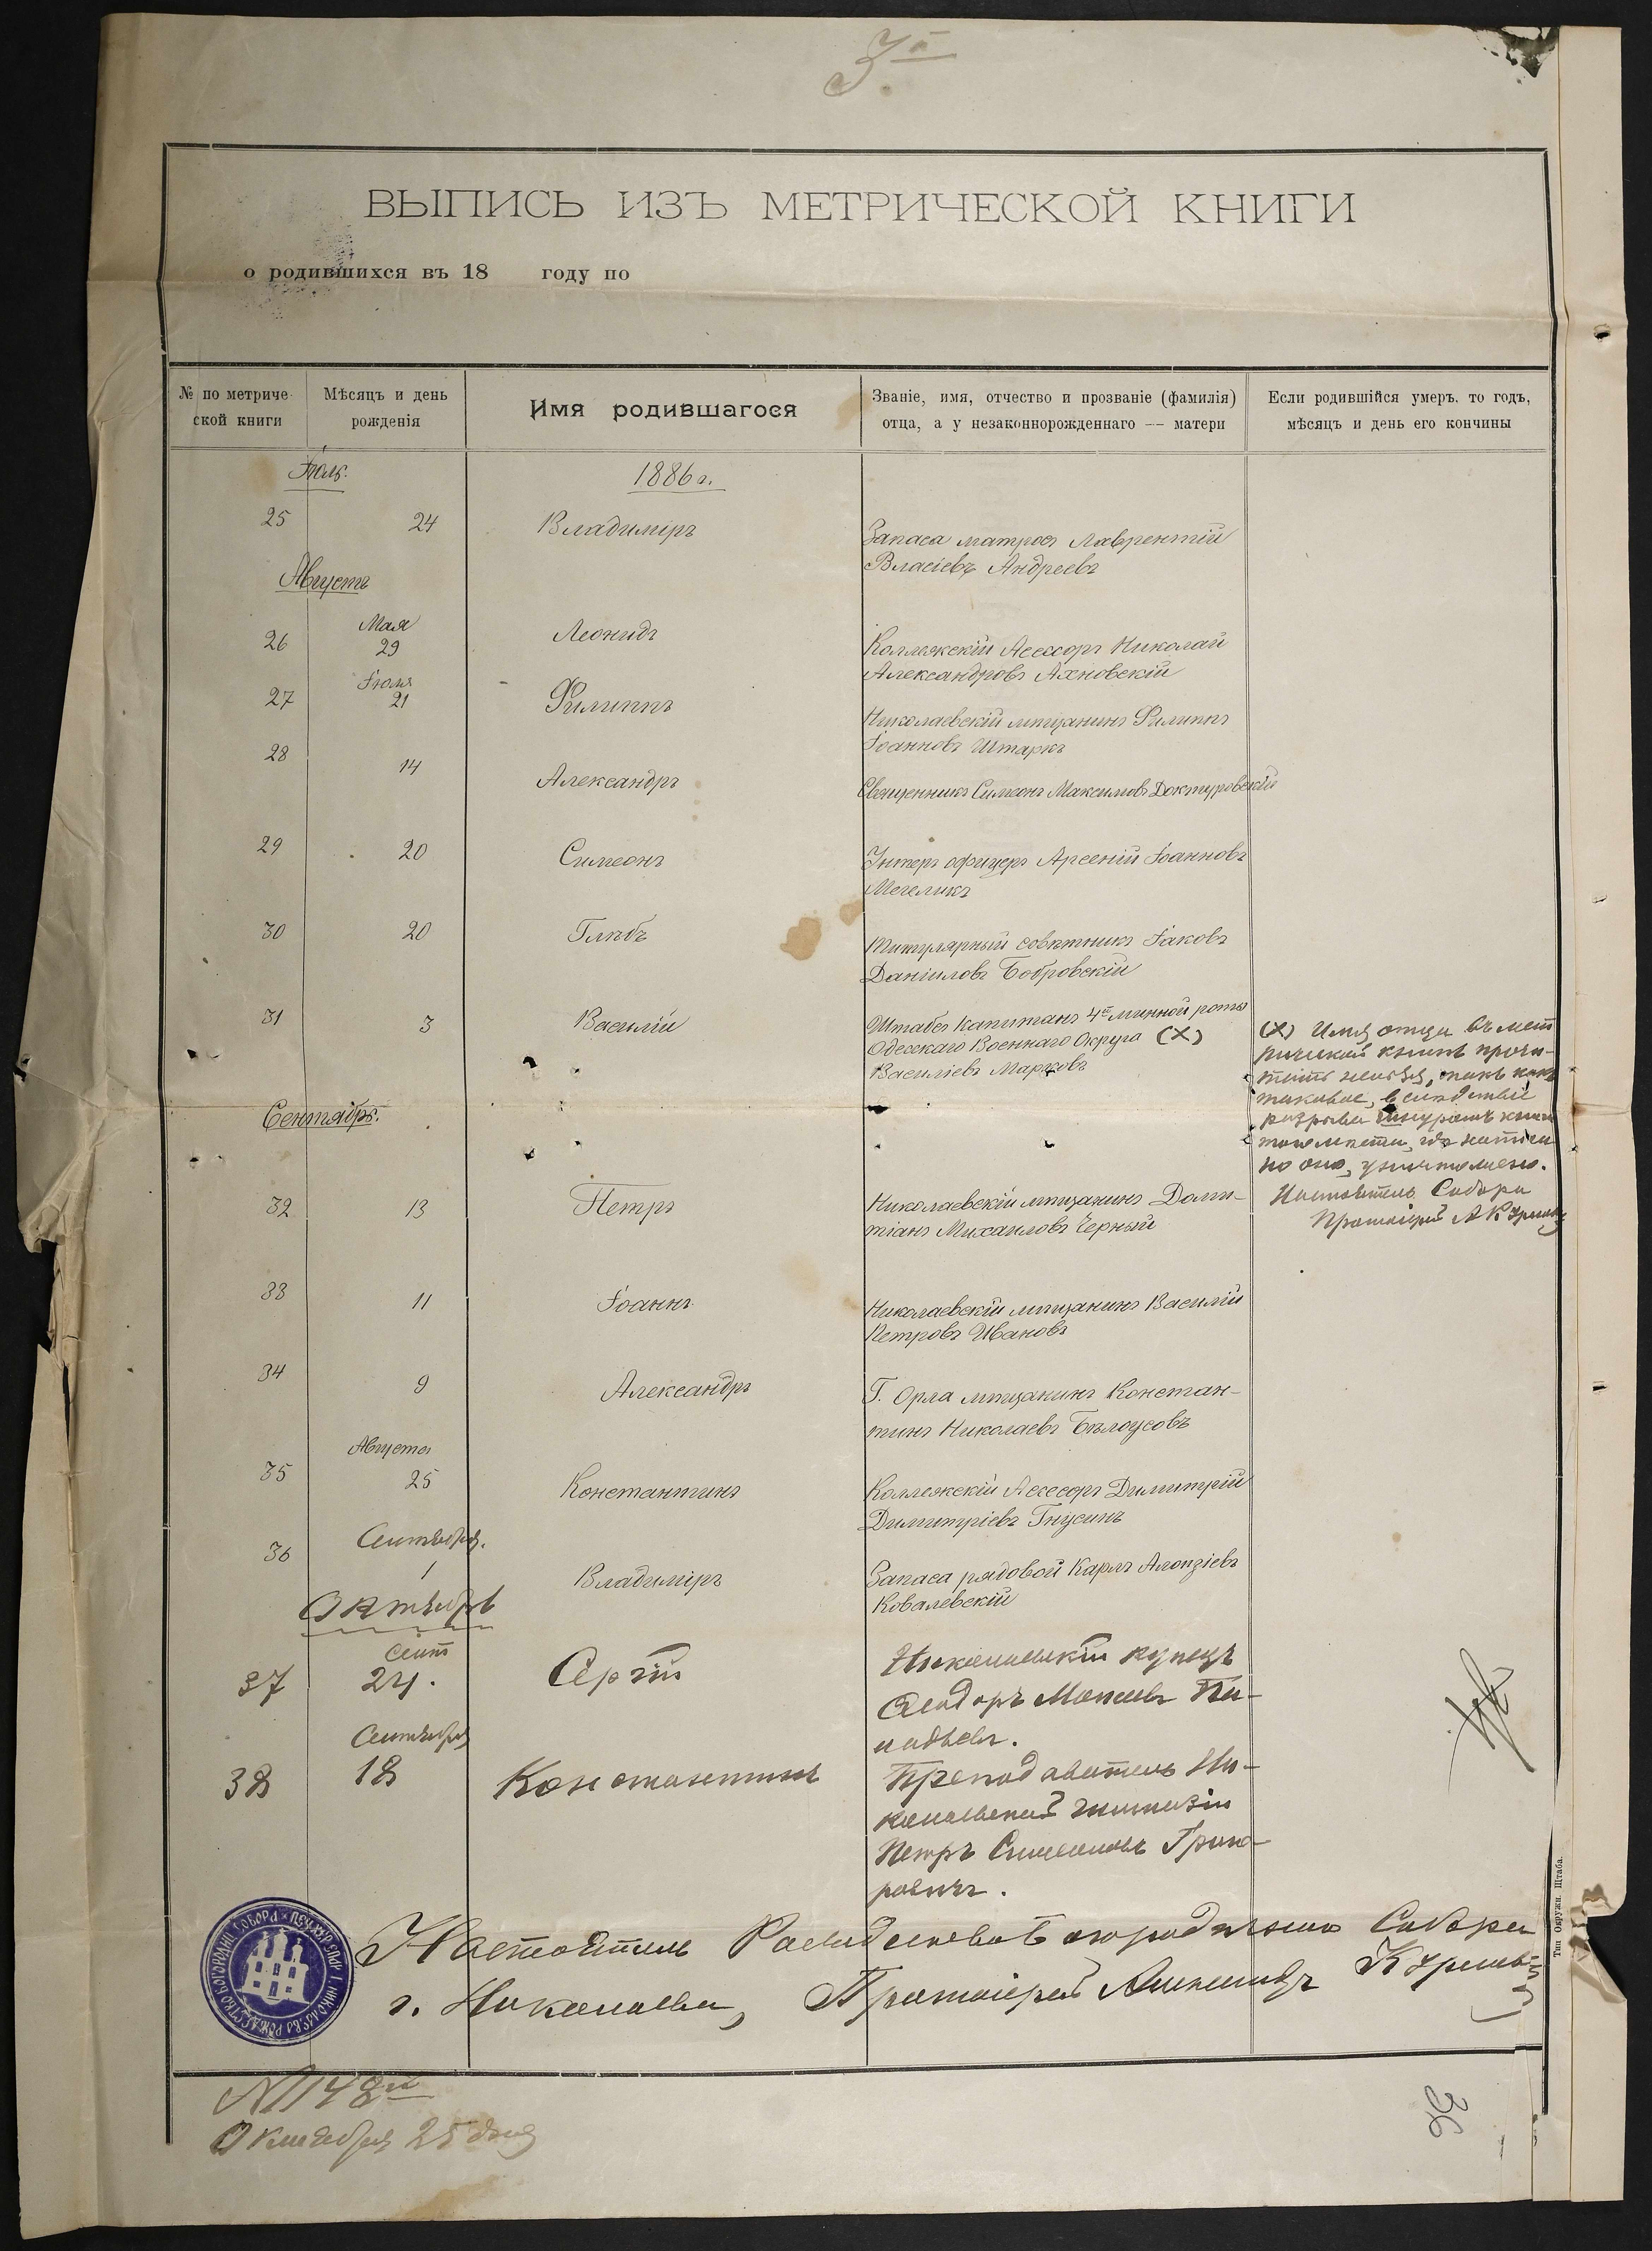 3й
ВЫПИСЬ ИЗЪ МЕТРИЧЕСКОЙ КНИГИ
о родившихся въ 18 году по
№ по метриче-
ской книги
Мѣсяцъ и день
рожденія
Имя родившагося
Званіе, имя, отчество и прозваніе (фамилія)
отца, а у незаконнорожденнаго — матери
Если родившійся умеръ, то годъ,
мѣсяцъ и день его кончины
Іюль.
1886 г.
25 24 Владиміръ
Запаса матросъ Лаврентій
Власіевъ Андреевъ
Августъ
Мая
26 29 Леонидъ
Коллежскій Асессоръ Николай
Александровъ Ахновскій
Іюля
27 21 Филиппъ
Николаевскій мѣщанинъ Филиппъ
Іоанновъ Штаркъ
28 14 Александръ
Священникъ Симеонъ Максимовъ Доктуровскій
29 20 Симеонъ
Унтеръ офицеръ Арсеній Іоанновъ
Мегеликъ
30 20 Глѣбъ
Титулярный совѣтникъ Іаковъ
Даніиловъ Бобровскій
31 3 Василій
Штабсъ Капитанъ 4й минной роты
Одесскаго Военнаго Округа (X)
Василіевъ Марковъ
(X) Имя отца въ мет
рической книгѣ прочи-
тать нельзя, такъ какъ
таковое, вслѣдствіе
разрыва шнуромъ книги
того мѣста, гдѣ написа
но оно, уничтожено.
Настоятель Собора
Протоіерей А
Сентябрь.
32 13 Петръ
Николаевскій мѣщанинъ Доми-
тіанъ Михаиловъ Черный
33 11 Іоаннъ
Николаевскій мѣщанинъ Василій
Петровъ Ивановъ
34 9 Александръ
Г. Орла мѣщанинъ Констан-
тинъ Николаевъ Бѣлоусовъ
Августа
35 25 Константинъ
Коллежскій Асессоръ Димитрій
Димитріевъ Гнусинъ
Сентября.
36 1 Владиміръ
Запаса рядовой Карлъ Алоизіевъ
Ковалевскій
Октябрь
Сент
37 24. Сергій
Николаевскій купецъ
Ѳеодоръ
Сентября
38 18 Константинъ
Преподаватель Ни-
колаевской гимназіи
Петръ Симеоновъ
Настоятель Рождество Богородичнаго Собора
г. Николаева, Протоіерей Александръ
№ 148й
Октября 25 дня
36
Тип Окружн. Штаба.